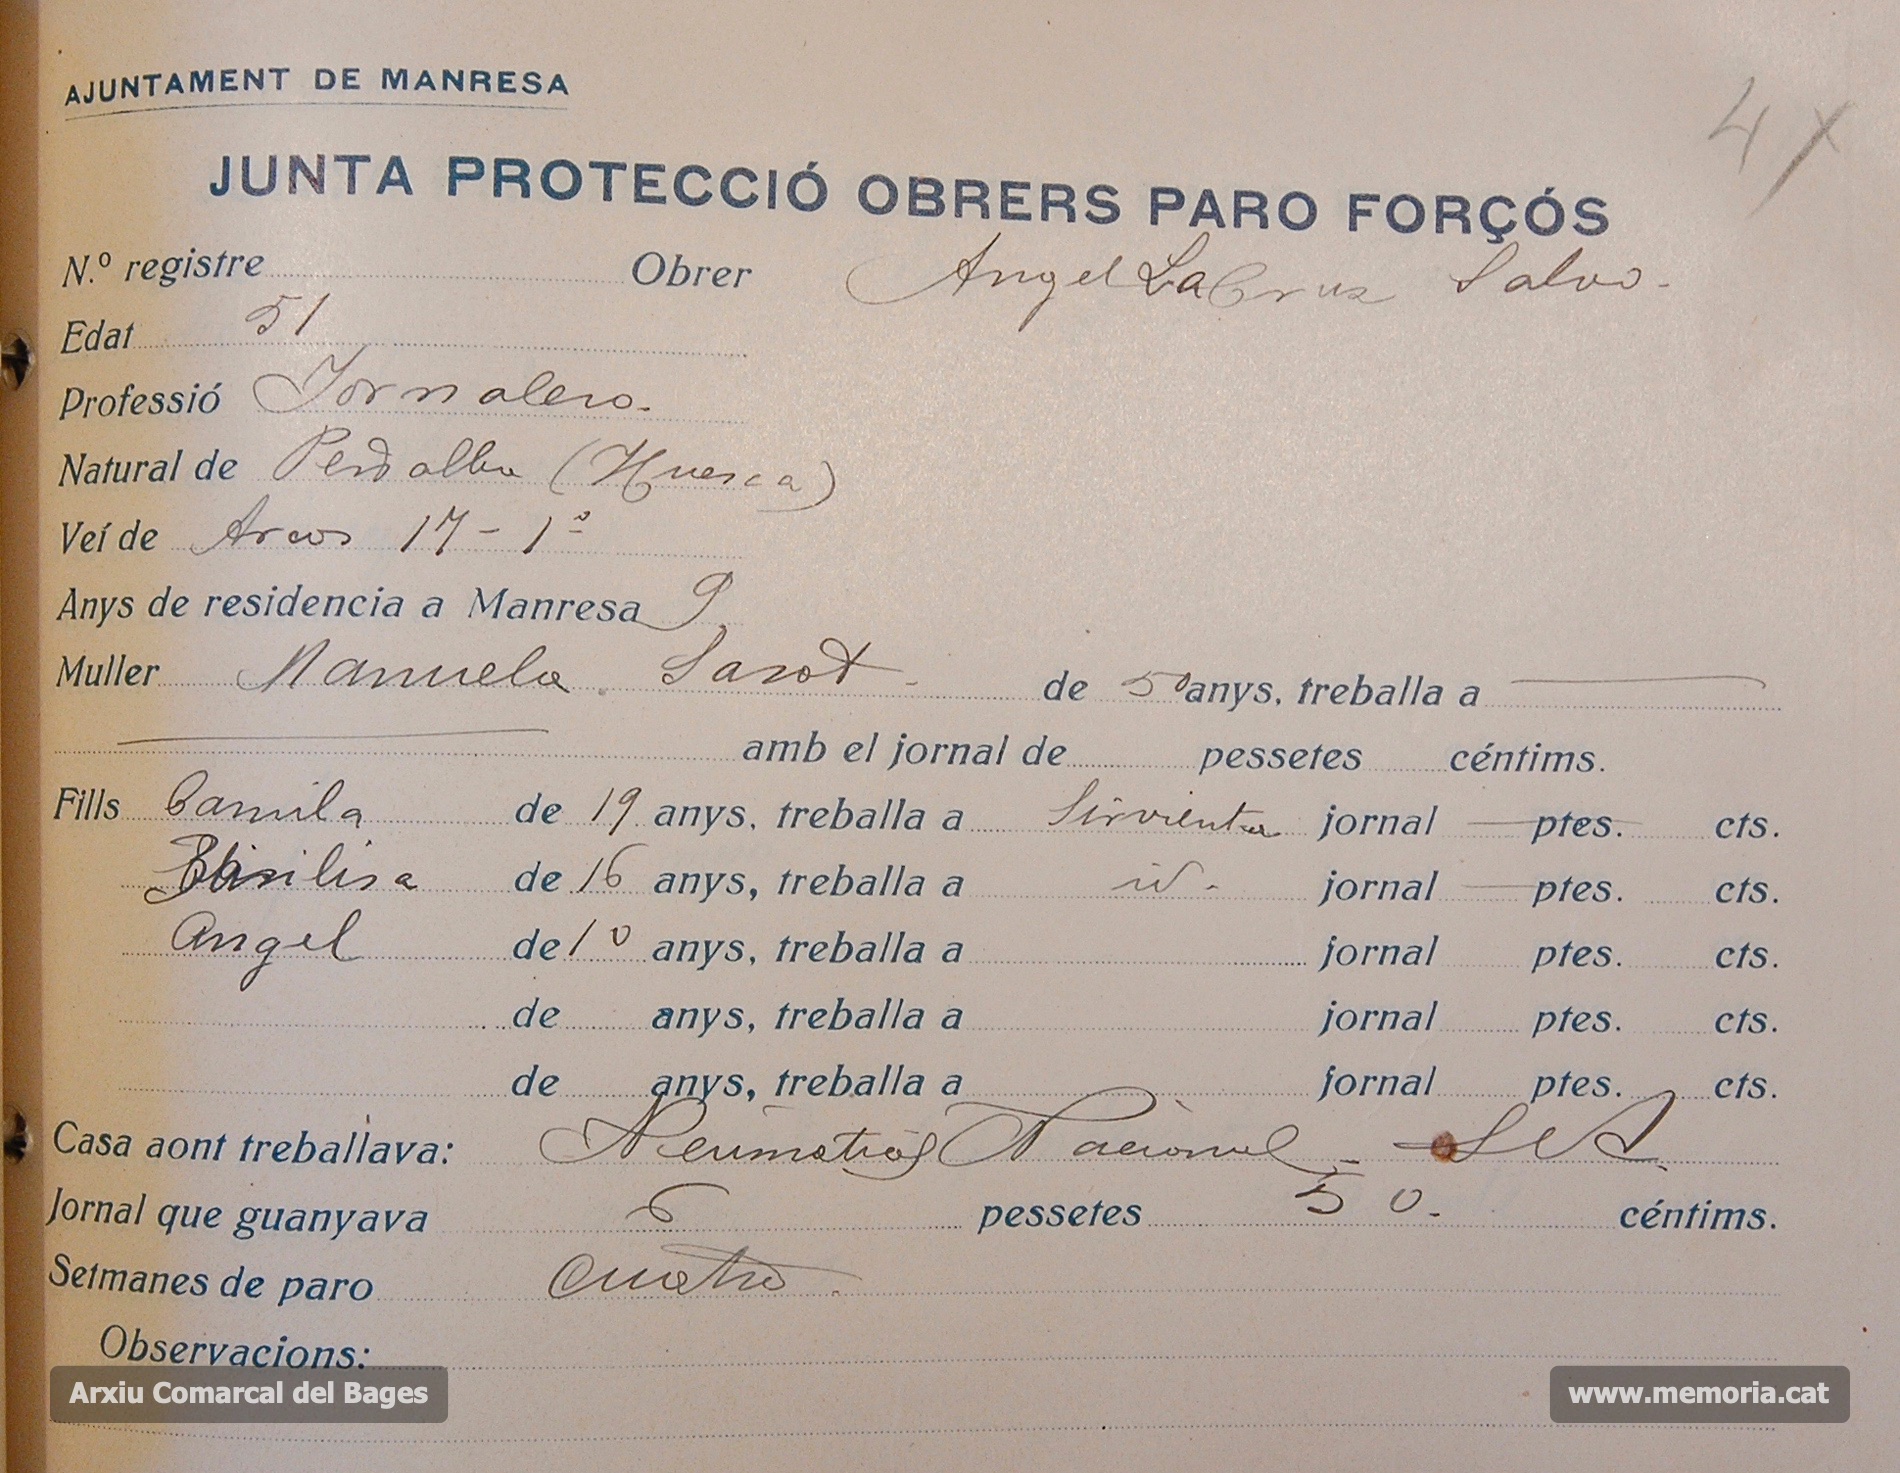 AJUNTAMENT DE MANRESA
4 X
JUNTA PROTECCIÓ OBRERS PARO FORÇÓS
N.º registre Obrer Angel LaCruz Salvo.
Edat 51
Professió Jornalero.
Natural de Peralba (Huesca)
Veí de Arcos 17 - 1º
Anys de residencia a Manresa 9
Muller Manuela Sarot de 50 anys, treballa a
amb el jornal de pessetes céntims.
Fills Camila de 19 anys, treballa a Sirvienta jornal ptes. cts.
de 16 anys, treballa a id. jornal ptes. cts.
Angel de 10 anys, treballa a jornal ptes. cts.
de anys, treballa a jornal ptes. cts.
de anys, treballa a jornal ptes. cts.
Casa aont treballava: Neumatics Nacional S A.
Jornal que guanyava 6 pessetes 50. céntims.
Setmanes de paro cuatro.
Observacions:
Arxiu Comarcal del Bages
www.memoria.cat